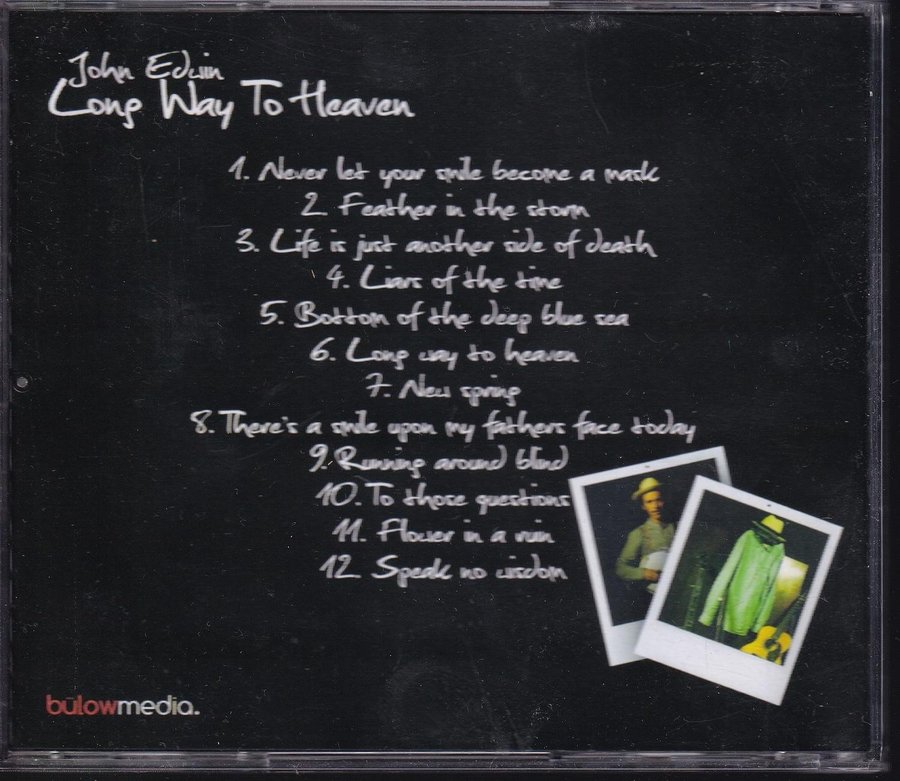 John Edwin
Long Way To Heaven
1. Never let your smile become a mask
2. Feather in the storm
3. Life is just another side of death
4. Liars of the time
5. Bottom of the deep blue sea
6. Long way to heaven
7. New spring
8. There's a smile upon my fathers face today
9. Running around blind
10. To those questions
11. Flower in a ruin
12. Speak no wisdom
būlowmedia.